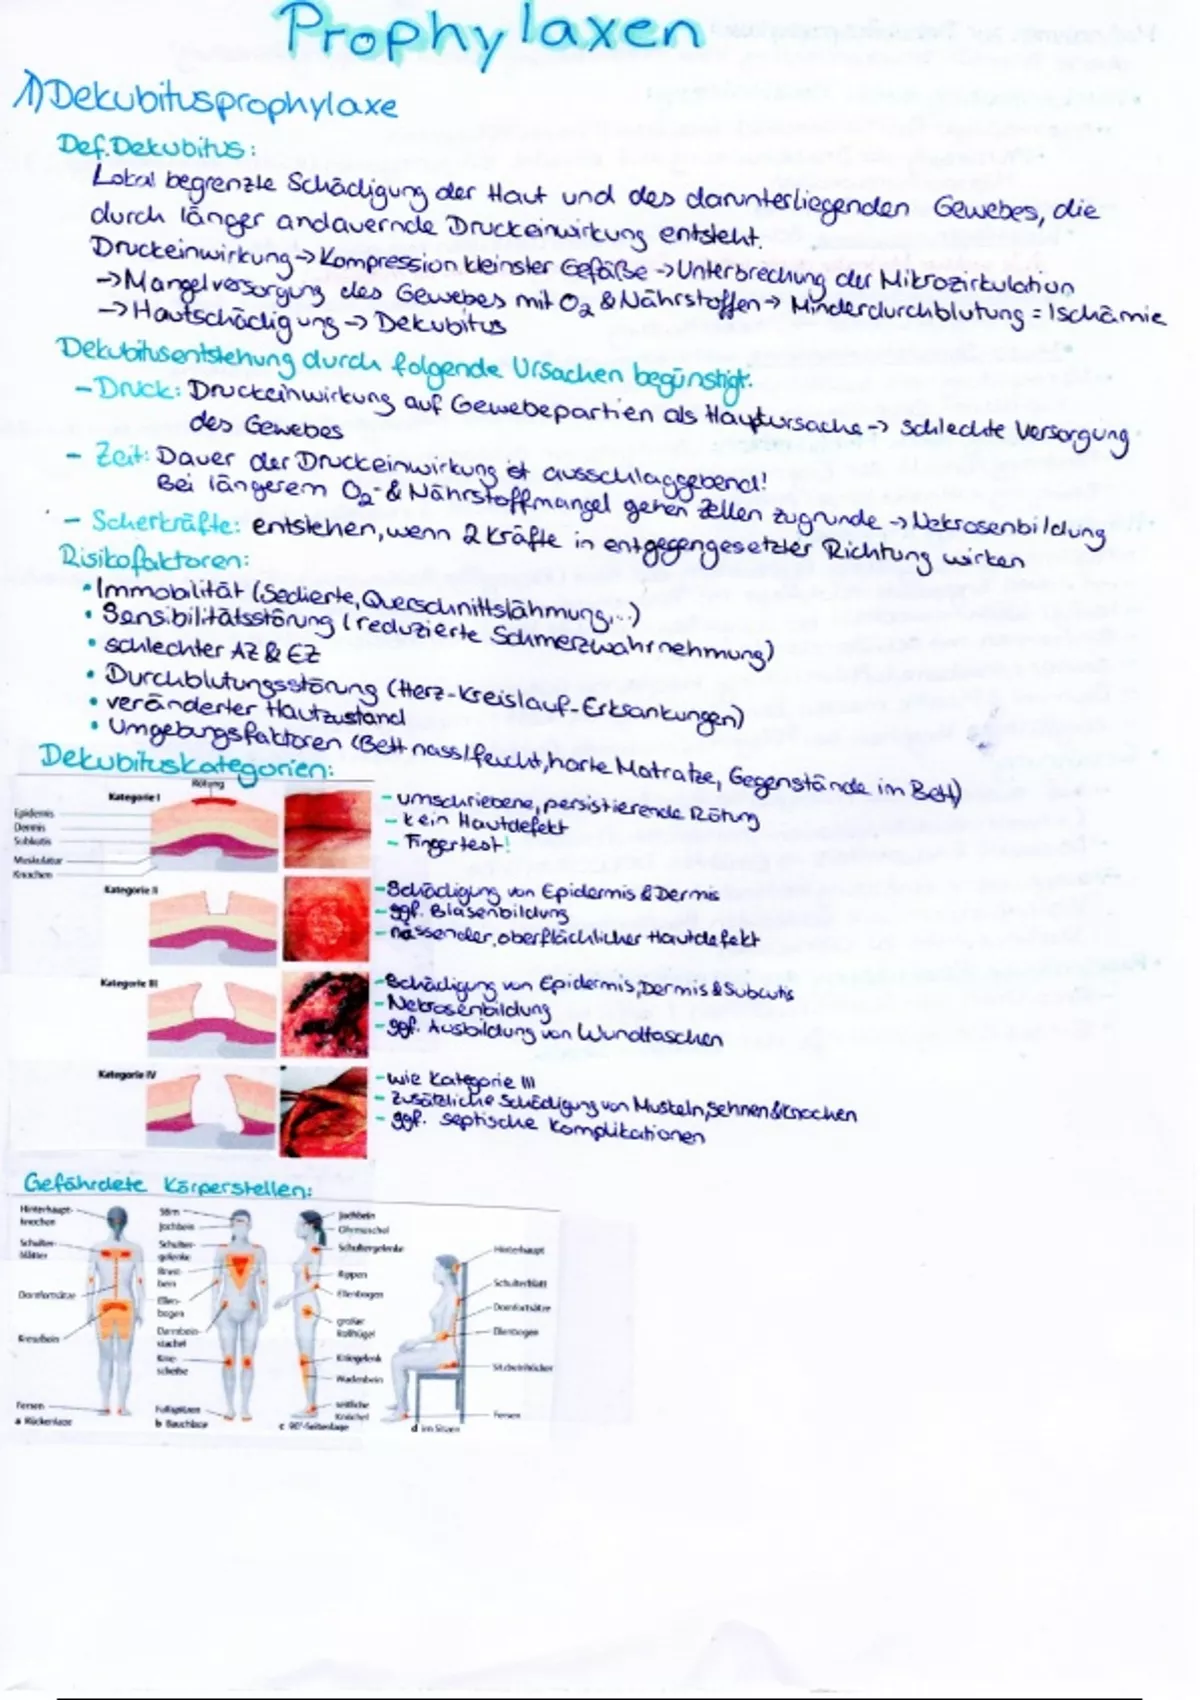 Prophylaxen
1) Dekubitusprophylaxe
Def. Dekubitus:
Lokal begrenzte Schädigung der Haut und des darunterliegenden Gewebes, die
durch länger andauernde Druckeinwirkung entsteht.
Druckeinwirkung → Kompression kleinster Gefäße → Unterbrechung der Mikrozirkulation
→ Mangelversorgung des Gewebes mit O2 & Nährstoffen → Minderdurchblutung = Ischämie
→ Hautschädigung → Dekubitus
Dekubitusentstehung durch folgende Ursachen begünstigt:
- Druck: Druckeinwirkung auf Gewebepartien als Hauptursache → schlechte Versorgung
des Gewebes
- Zeit: Dauer der Druckeinwirkung ist ausschlaggebend!
Bei längerem O2- & Nährstoffmangel gehen Zellen zugrunde → Nekrosenbildung
- Scherkräfte: entstehen, wenn 2 Kräfte in entgegengesetzter Richtung wirken
Risikofaktoren:
• Immobilität (Sedierte, Querschnittslähmung,..)
• Sensibilitätsstörung (reduzierte Schmerzwahrnehmung)
• schlechter AZ & EZ
• Durchblutungsstörung (Herz-Kreislauf-Erksankungen)
• veränderter Hautzustand
• Umgebungsfaktoren (Bett nass/feucht, harte Matratze, Gegenstände im Bett)
Dekubituskategorien:
Rötung
Kategorie I
Epidermis
Dermis
Subkutis
Muskulatur
Knochen
- umschriebene, persistierende Rötung
- kein Hautdefekt
- Fingertest!
Kategorie II
- Schädigung von Epidermis & Dermis
- ggf. Blasenbildung
- nässender, oberflächlicher Hautdefekt
Kategorie III
- Schädigung von Epidermis, Dermis & Subcutis
- Nekrosenbildung
- ggf. Ausbildung von Wundtaschen
Kategorie IV
- wie Kategorie III
- zusätzliche Schädigung von Muskeln, Sehnen & Knochen
- ggf. septische Komplikationen
Gefährdete Körperstellen:
Hinterhaupt-
knochen
Schulter-
blätter
Dornfortsätze
Kreuzbein
Fersen
a Rückenlage
Stirn
Jochbein
Schulter-
gelenke
Brust-
bein
Ellen-
bogen
Darmbein-
stachel
Knie-
scheibe
Fußspitzen
b Bauchlage
Jochbein
Ohrmuschel
Schultergelenke
Rippen
Ellenbogen
großer
Rollhügel
Kniegelenk
Wadenbein
seitliche
Knöchel
c 90°-Seitenlage
Hinterhaupt
Schulterblatt
Dornfortsätze
Ellenbogen
Sitzbeinhöcker
Fersen
d im Sitzen